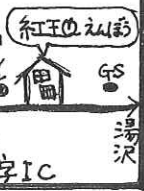 紅玉の えんぼう
GS
湯沢
字IC